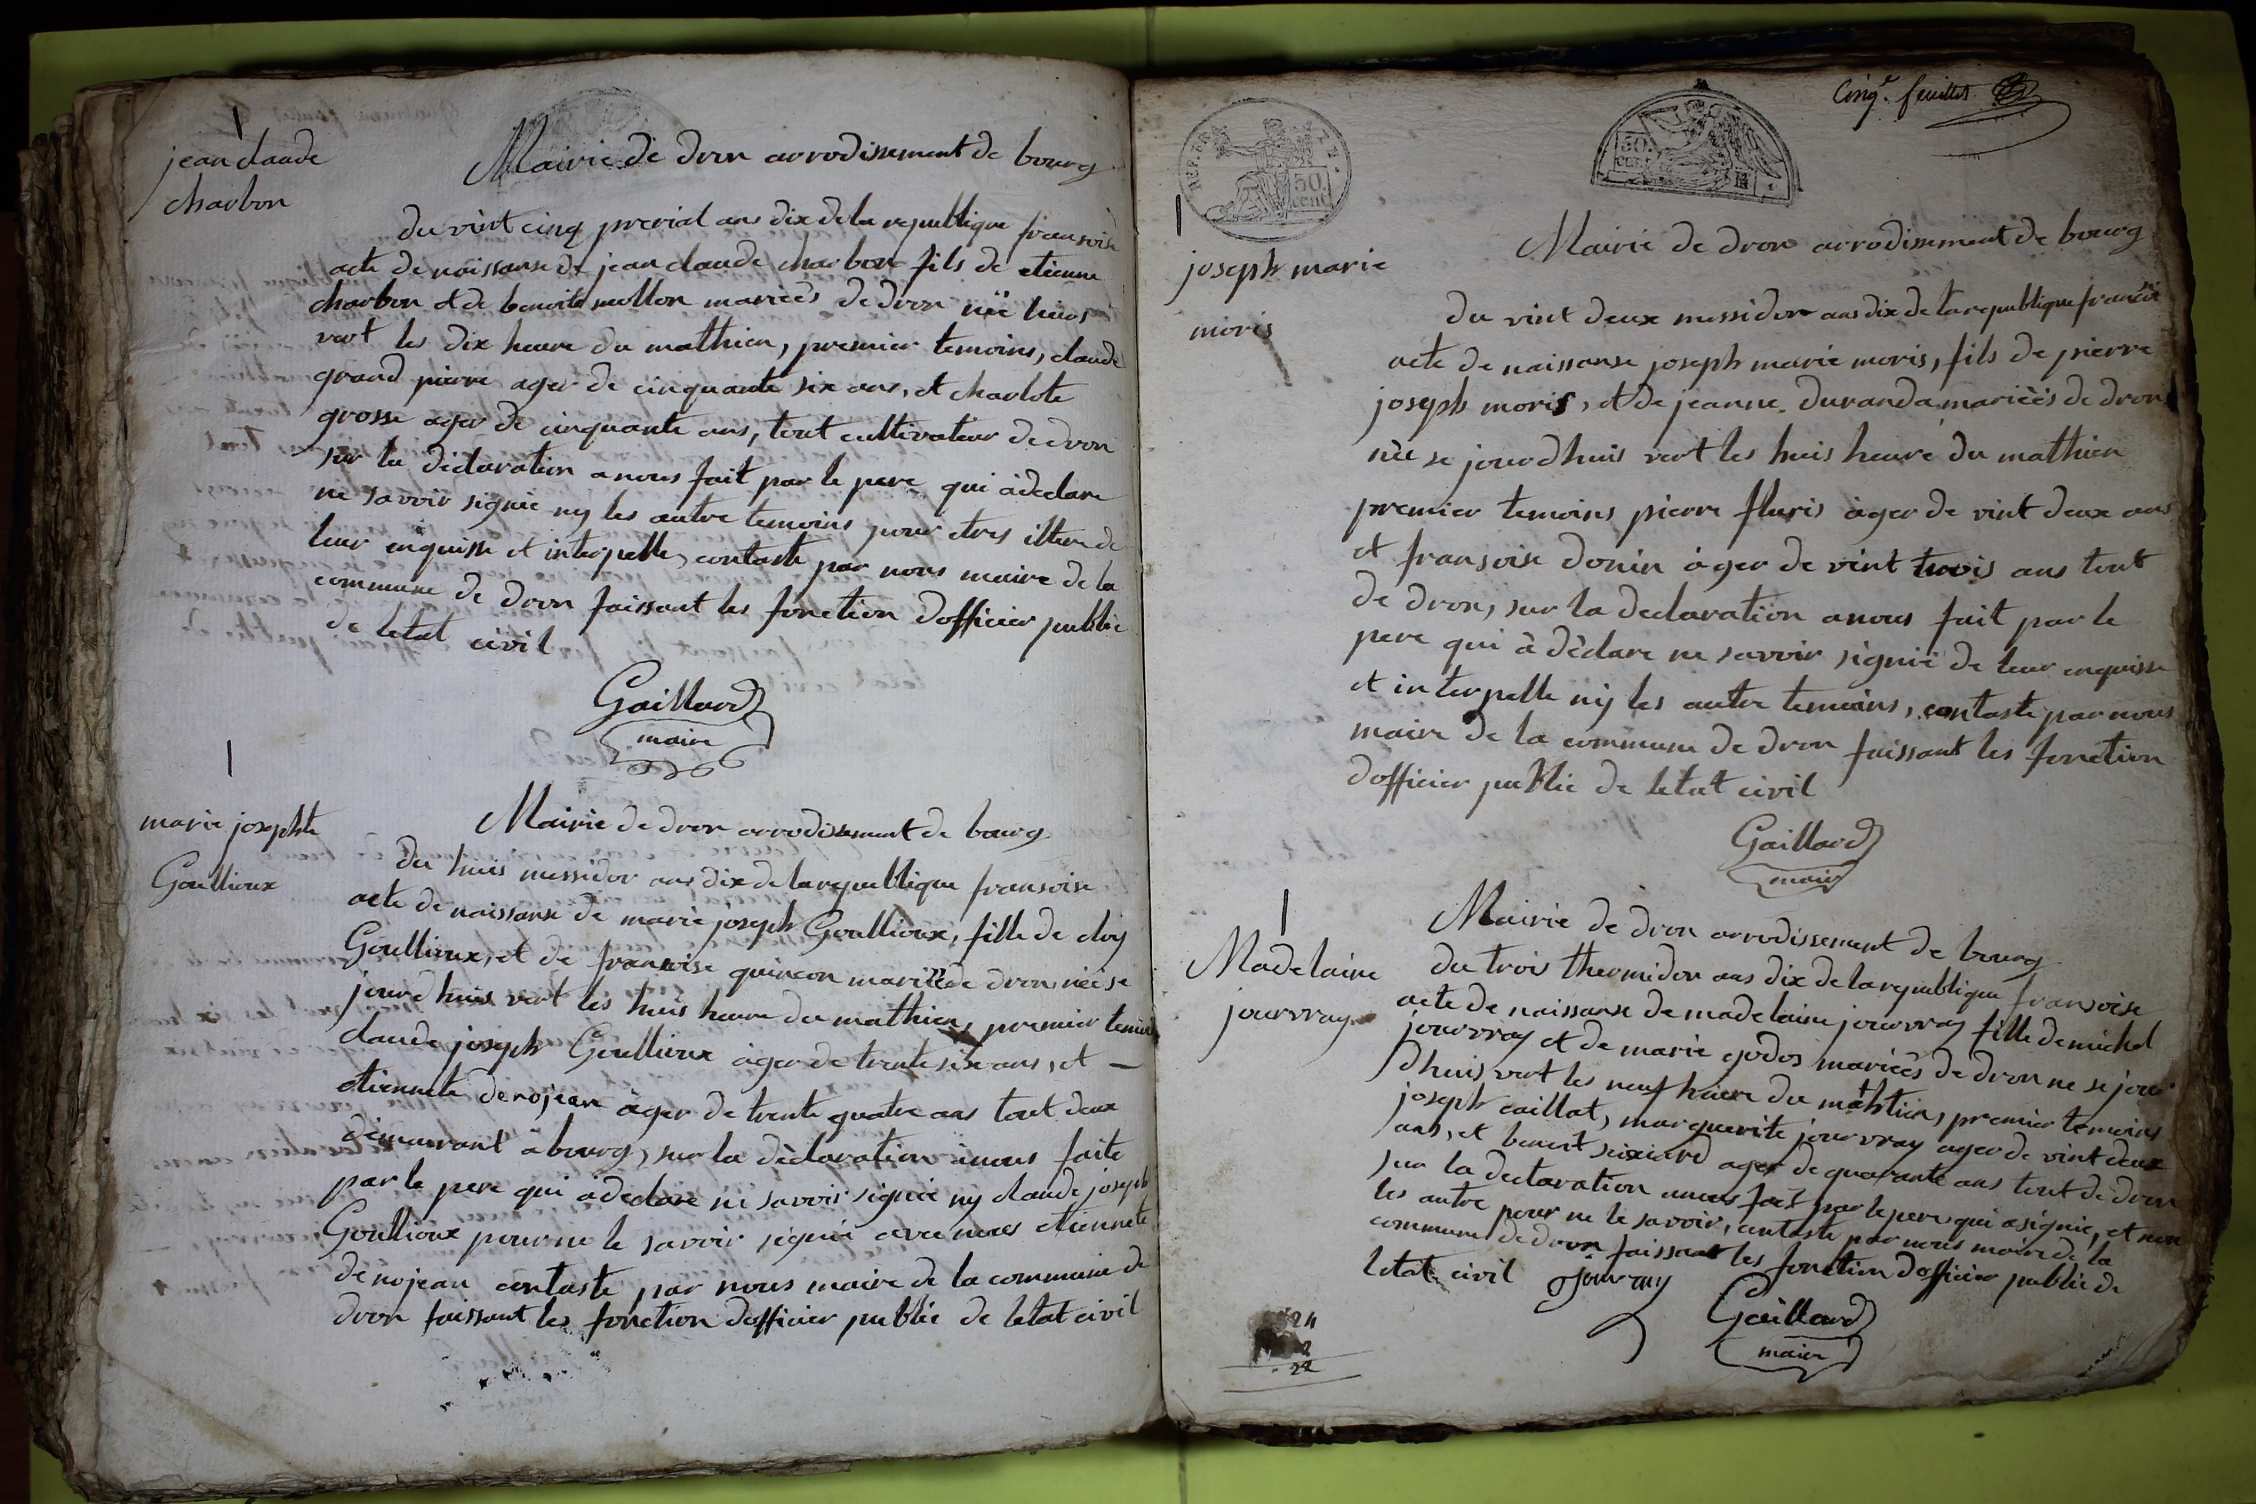 jean claude
charbon
Mairie de dron arrodissement de bourg
du vint cinq prerial ans dix de la republique fransoise
acte de naissanse de jean claude charbon fils de etienne
charbon et de benoite mollon mariéés de dron
vert les dix heure du mathien, premier temoins, claude
grand pierre ager de cinquante six ans, et charlote
grosse ager de cinquante ans, tout cultivateur de dron
sur la déclaration a nous fait par le pere qui à declare
ne savoir signie ny les autre temoins pour etres de
leur enquisse et interpelle, contaste par nous maire de la
commune de dron faissant les fonction dofficier public
de letat civil
Gaillard
maire
marie josephte
Goullioux
Mairie de dron arrodissement de bourg
du huis messidor ans dix de la republique fransoise
acte de naissanse de marie joseph Goullioux, fille de eloy
Goullioux, et de fransoise quinson de dron néé se
jourdhuis vert les huis heure du mathien, premier temoin
claude joseph Goullioux àger de trente sixe ans, et —
etiennete denojean àger de trente quatre ans tout deux
demeurant à bourg, sur la déclaration à nous faite
par le pere qui à declare ne savoir signie ny claude joseph
Goullioux pour ne le savoir signié avec nous etiennete
denojean contaste par nous maire de la commune de
dron faissant les fonction dofficier public de letat civil
Cinq.e feuillet
REP. FRA.
50.
cent
50.
CENT.
joseph marie
moris
Mairie de dron arrodissement de bourg
du vint deux messidor ans dix de la republique
acte de naissanse joseph marie moris, fils de pierre
joseph moris, et de jeanne duranda mariéés de dron
née se jourdhuis vert les huis heure du mathien
premier temoins pierre fluris àger de vint deux ans
et fransoise donin àger de vint trois ans tout
de dron, sur la declaration a nous fait par le
pere qui à déclare ne savoir signié de leur enquisse
et interpelle nij les autre temoins, contaste par nous
maire de la commune de dron faissant les fonction
dofficier public de letat civil
Gaillard
maire
Madelaine
jourvray
Mairie de dron arrodissement de bourg
du trois thermidor ans dix de la republique fransoise
acte de naissanse de madelaine jourvray fille de michel
jourvray et de marie godos mariéés de dron ne se jour
dhuis vert les neuf heure du mathtien, premier temoins
joseph caillat, marguerite jourvray ager de vint deux
ans, et benoit ager de quarante ans tout de dron
sur la declaration a nous fait par le pere qui a signie, et non
les autre pour ne le savoir, contaste par nous maire de la
commune de dron faissant les fonction dofficier public de
letat civil Jourvray
Gaillard
maire
24
2
22